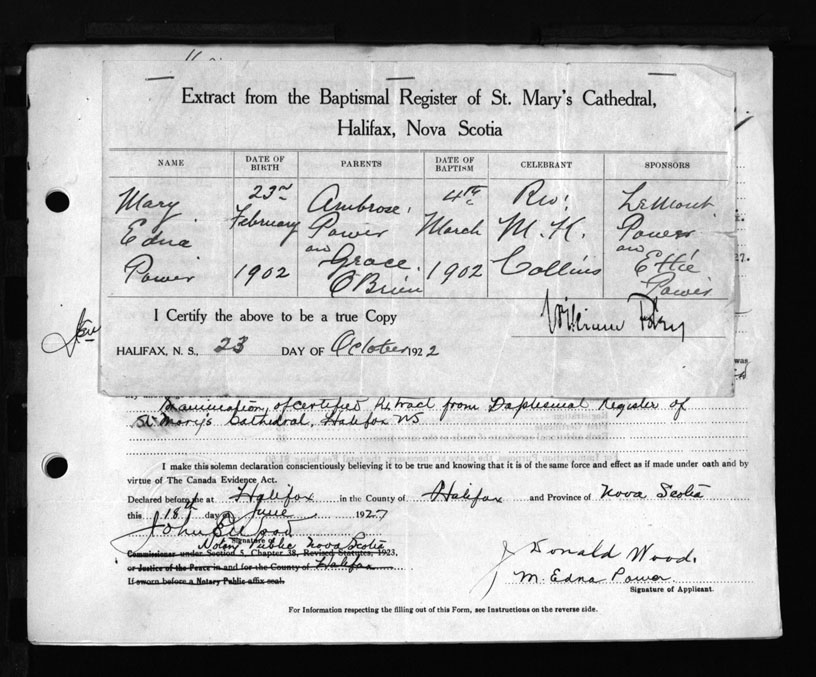 Extract from the Baptismal Register of St. Mary's Cathedral,
Halifax, Nova Scotia
NAME DATE OF BIRTH PARENTS DATE OF BAPTISM CELEBRANT SPONSORS
Mary 23rd Ambrose 4th Rev. LeMont
Edna February Power March M. K. Power
and and
Power 1902 Grace 1902 Collins Ettie
O'Brien Power
I Certify the above to be a true Copy
William
HALIFAX, N. S., 23 DAY OF October 1922
was
of certified Extract from Baptismal Register of
St Mary's Cathedral, Halifax NS
I make this solemn declaration conscientiously believing it to be true and knowing that it is of the same force and effect as if made under oath and by
virtue of The Canada Evidence Act.
Declared before me at Halifax in the County of Halifax and Province of Nova Scotia
this 18th day June 1927
John
Signature of
Notary Public Nova Scotia
Commissioner under Section 5, Chapter 38, Revised Statutes, 1923,
or Justice of the Peace in and for the County of Halifax
If sworn before a Notary Public affix seal.
J Donald Wood.
M. Edna Power.
Signature of Applicant.
For Information respecting the filling out of this Form, see Instructions on the reverse side.